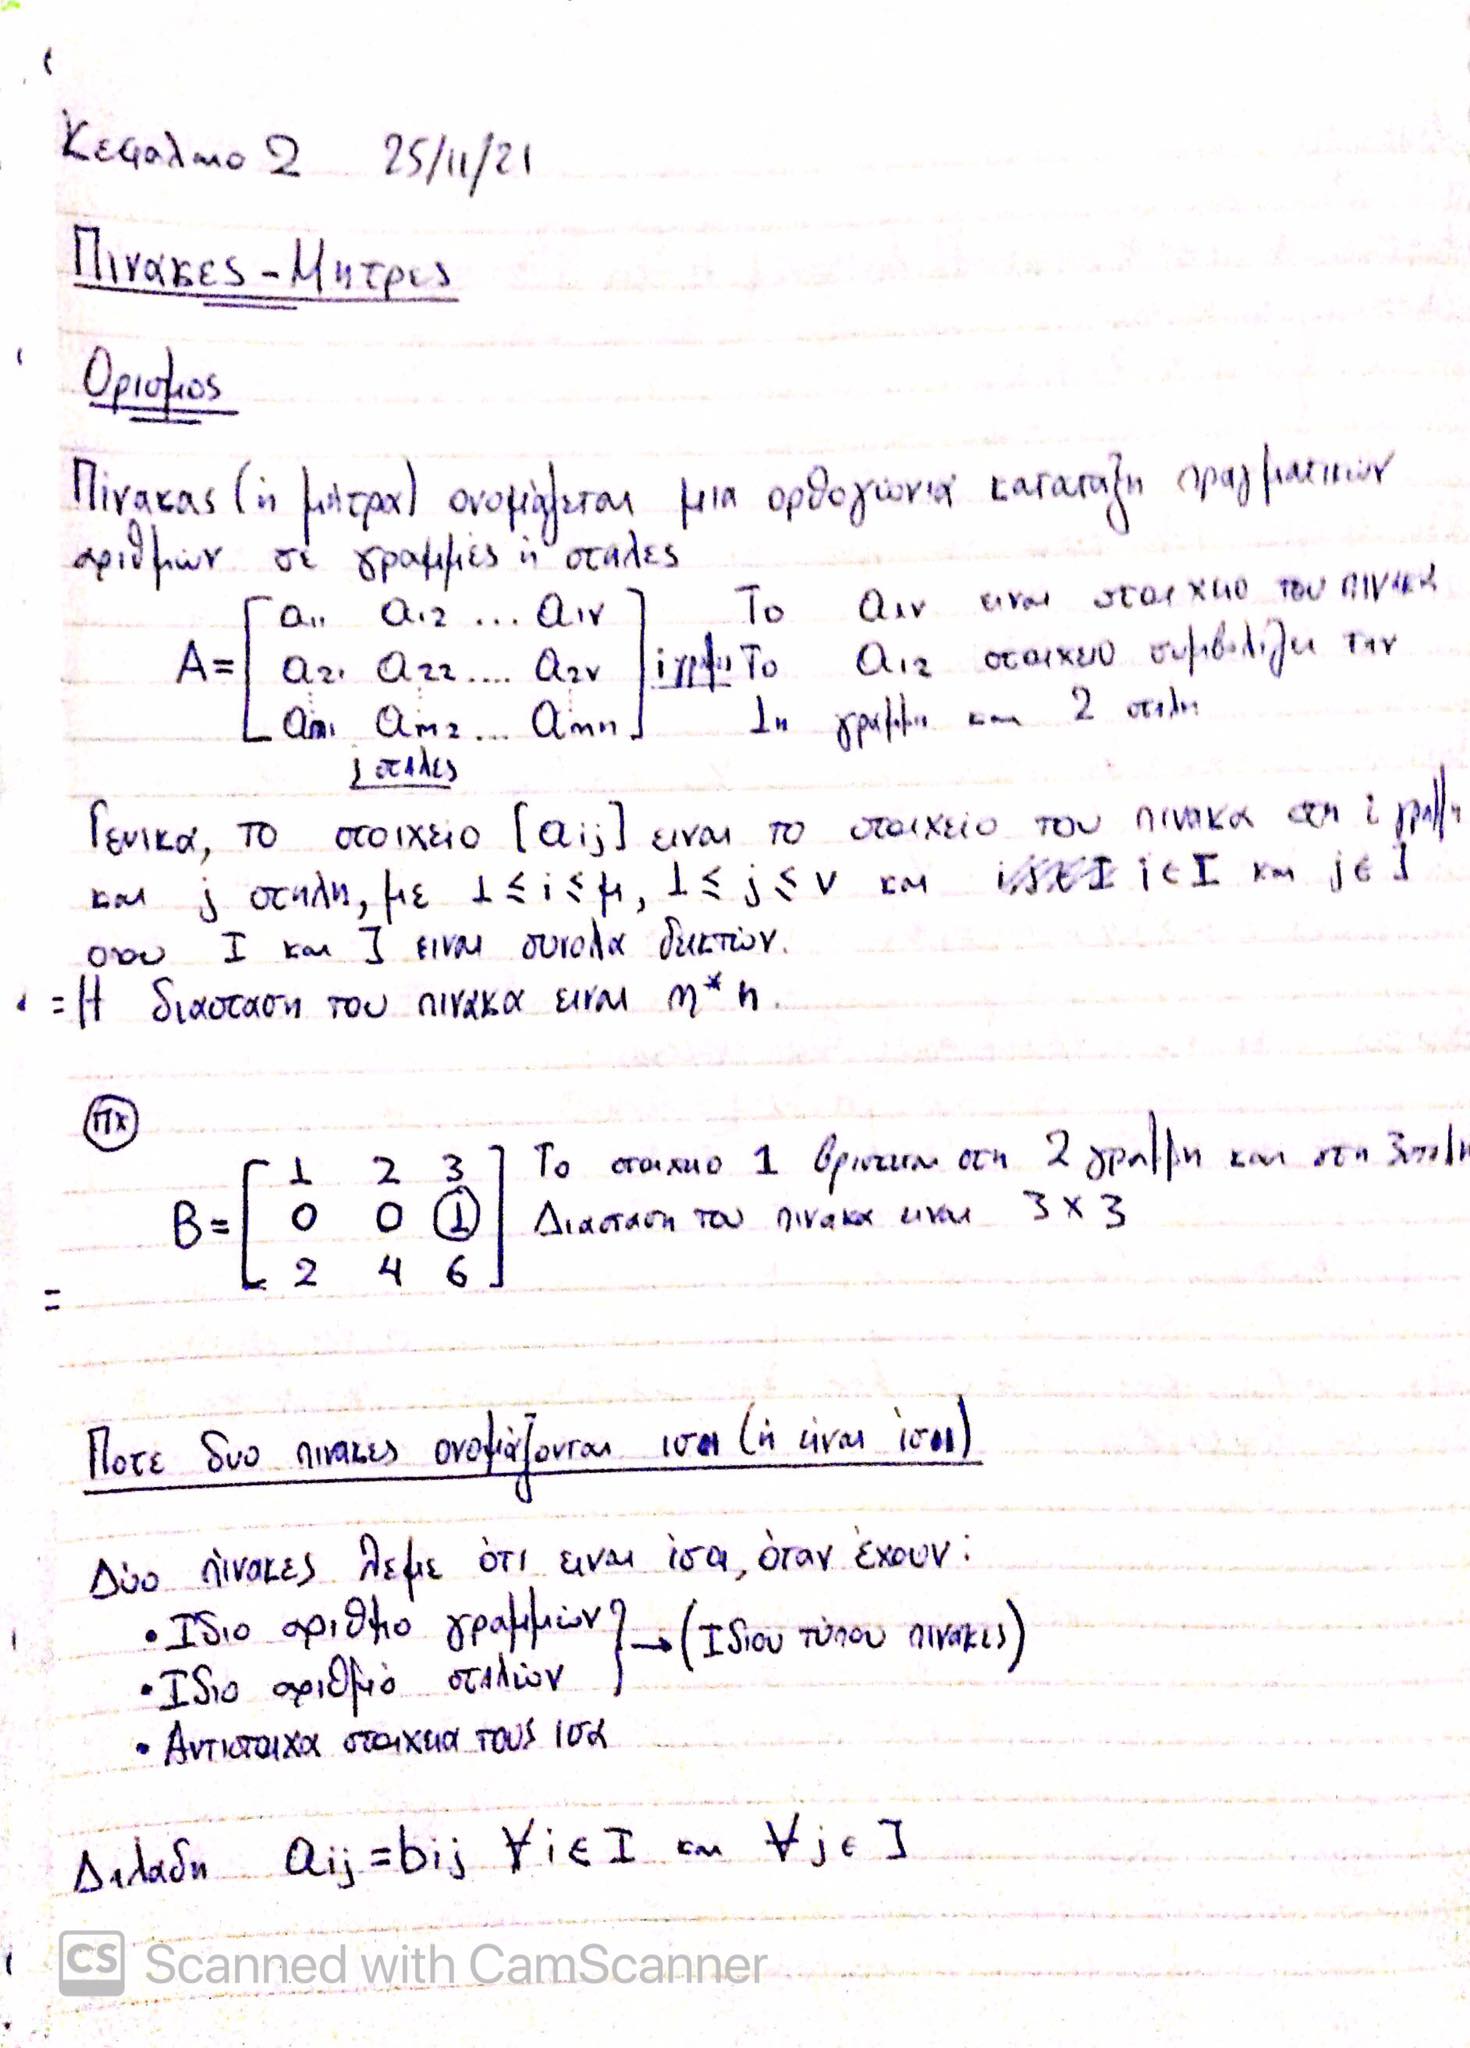 Κεφαλαιο 2 25/11/21
Πινακες - Μητρες
Ορισμος
Πίνακας (ή μήτρα) ονομάζεται μια ορθογώνια καταταξη πραγματικών
αριθμών σε γραμμές ή στηλες
A = [ a11 a12 ... a1ν ] Το a1ν ειναι στοιχειο του πινακα
[ a21 a22 .... a2ν ] i γραμμες Το a12 στοιχειο συμβολιζει την
[ am1 am2 ... amn ] 1η γραμμη και 2 στηλη
j στηλες
Γενικα, το στοιχείο [aij] ειναι το στοιχείο του πινακα στη i γραμμη
και j στηλη, με 1 ≤ i ≤ μ, 1 ≤ j ≤ ν και i ∈ I και j ∈ J
οπου I και J ειναι συνολα δεικτών.
= Η διασταση του πινακα ειναι m * n.
πχ
B = [ 1 2 3 ] Το στοιχειο 1 βρισκεται στη 2 γραμμη και στη 3 στηλη
[ 0 0 1 ] Διασταση του πινακα ειναι 3 × 3
[ 2 4 6 ]
=
Ποτε δυο πινακες ονομάζονται ισοι (ή είναι ίσοι)
Δύο πίνακες λεμε ότι ειναι ίσοι, όταν έχουν:
• Ιδιο αριθμο γραμμών } → (Ιδιου τύπου πινακες)
• Ιδιο αριθμό στηλών
• Αντιστοιχα στοιχεια τους ισα
Δηλαδη aij = bij ∀ i ∈ I και ∀ j ∈ J
CS Scanned with CamScanner